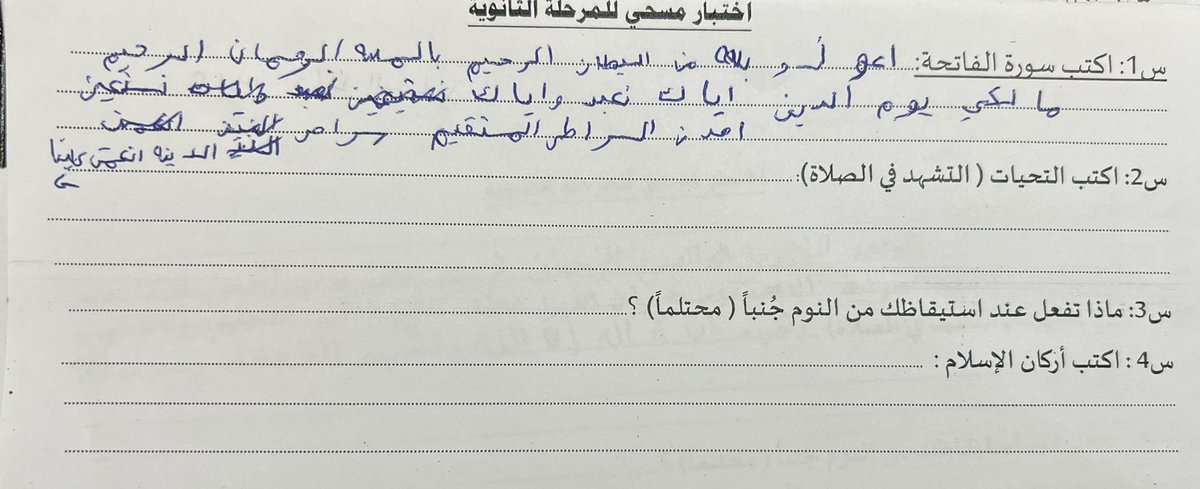 اختبار مسحي للمرحلة الثانوية
س1: اكتب سورة الفاتحة: اعو لسو بالله من السيطان الرحيم بالمله الرحمان الرحيم
ما لكي يوم الدين اياك نعبد واياك نستعين
اهدن السراطر المستقيم سراص الدينه انعمتي علينا
س2: اكتب التحيات ( التشهد في الصلاة):
س3: ماذا تفعل عند استيقاظك من النوم جُنباً ( محتلماً) ؟
س4: اكتب أركان الإسلام :